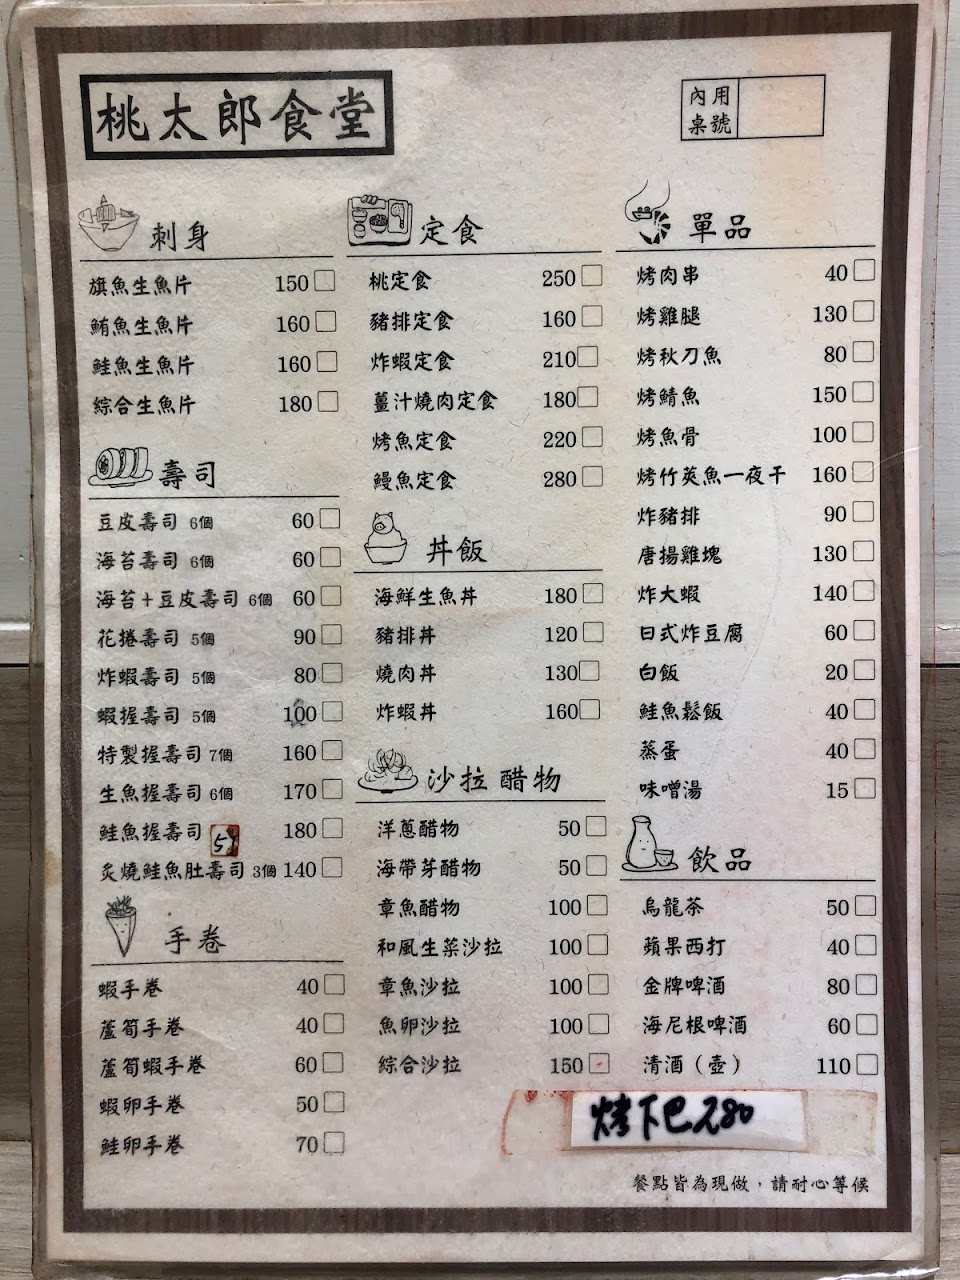 桃太郎食堂
內用
桌號
刺身
旗魚生魚片 150
鮪魚生魚片 160
鮭魚生魚片 160
綜合生魚片 180
壽司
豆皮壽司 6個 60
海苔壽司 6個 60
海苔+豆皮壽司 6個 60
花捲壽司 5個 90
炸蝦壽司 5個 80
蝦握壽司 5個 100
特製握壽司 7個 160
生魚握壽司 6個 170
鮭魚握壽司 5個 180
炙燒鮭魚肚壽司 3個 140
手卷
蝦手卷 40
蘆筍手卷 40
蘆筍蝦手卷 60
蝦卵手卷 50
鮭卵手卷 70
定食
桃定食 250
豬排定食 160
炸蝦定食 210
薑汁燒肉定食 180
烤魚定食 220
鰻魚定食 280
丼飯
海鮮生魚丼 180
豬排丼 120
燒肉丼 130
炸蝦丼 160
沙拉 醋物
洋蔥醋物 50
海帶芽醋物 50
章魚醋物 100
和風生菜沙拉 100
章魚沙拉 100
魚卵沙拉 100
綜合沙拉 150
單品
烤肉串 40
烤雞腿 130
烤秋刀魚 80
烤鯖魚 150
烤魚骨 100
烤竹莢魚一夜干 160
炸豬排 90
唐揚雞塊 130
炸大蝦 140
日式炸豆腐 60
白飯 20
鮭魚鬆飯 40
蒸蛋 40
味噌湯 15
飲品
烏龍茶 50
蘋果西打 40
金牌啤酒 80
海尼根啤酒 60
清酒（壺） 110
烤下巴 280
餐點皆為現做，請耐心等候